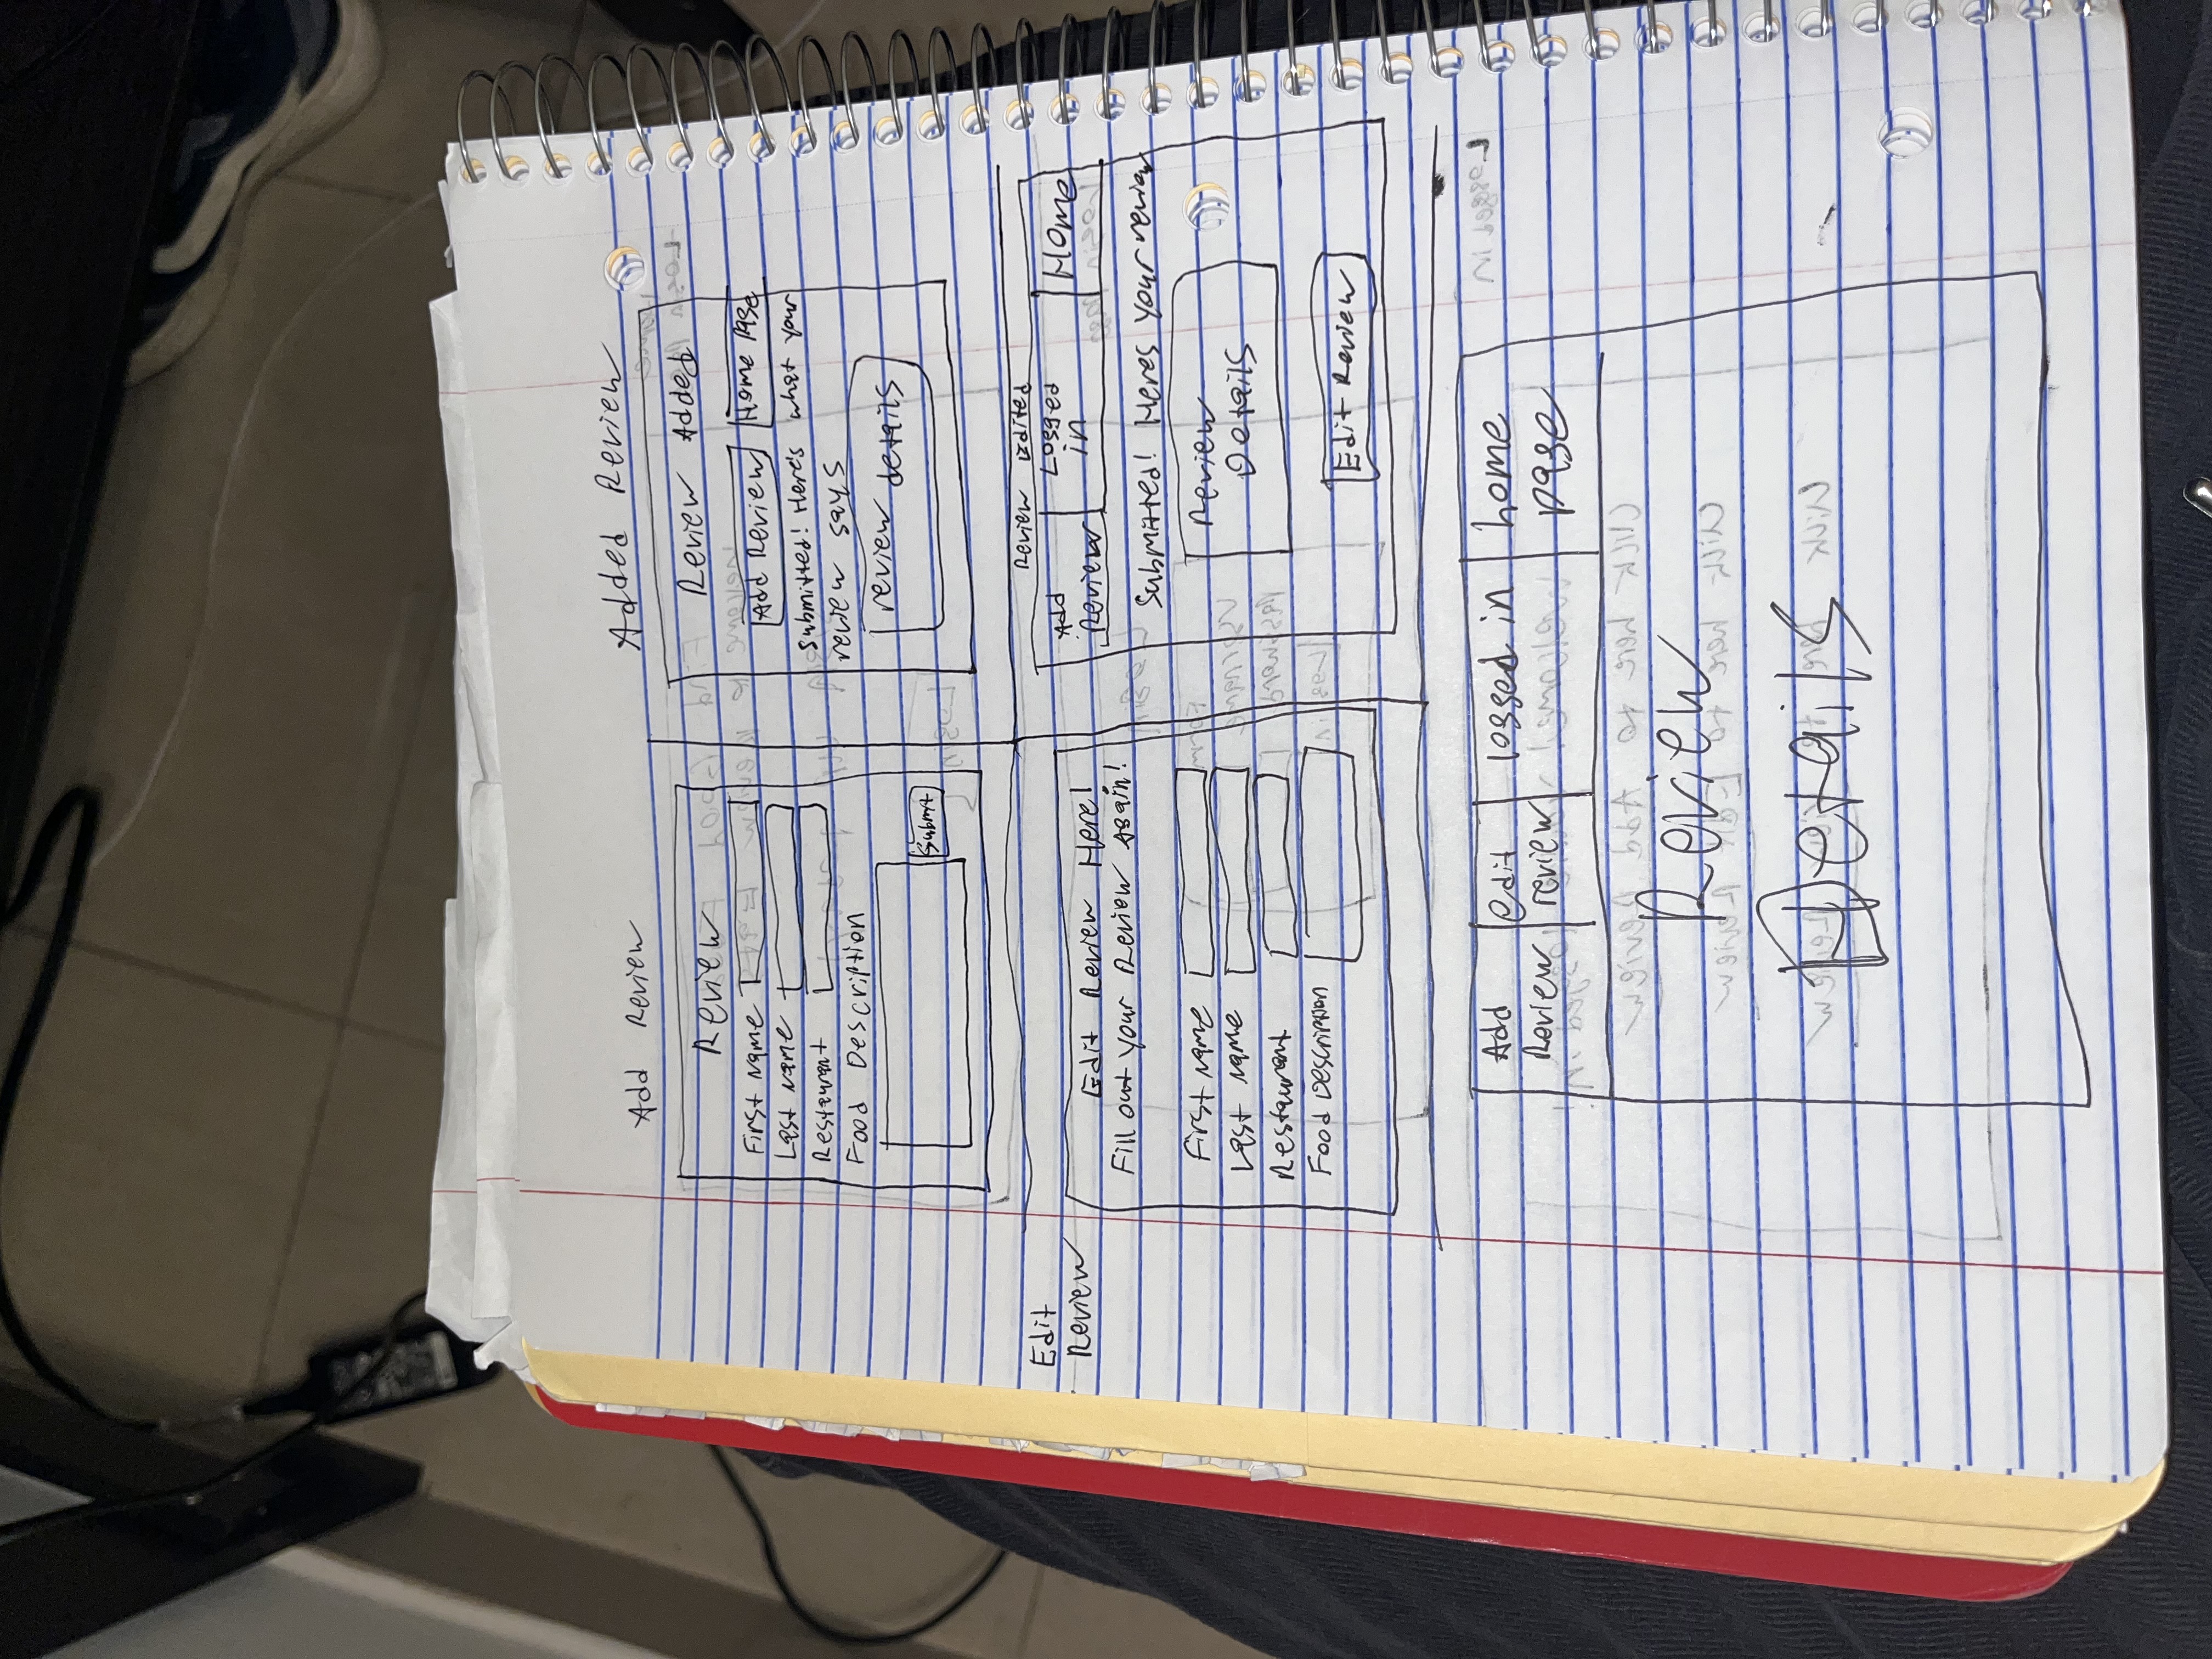 Add Review
Review
First Name
Last Name
Restaurant
Food Description
Submit
Added Review
Review Added
Add Review
Home Page
Submitted! Here's what your
review says
review details
Edit
Review
Edit Review Here!
Fill out your Review Again!
First Name
Last Name
Restaurant
Food Description
Review Edited
Add
Review
Logged
in
Home
Submitted! Heres your review
Review
Details
Edit Review
Add
Review
edit
review
logged in
home
page
Review
Details